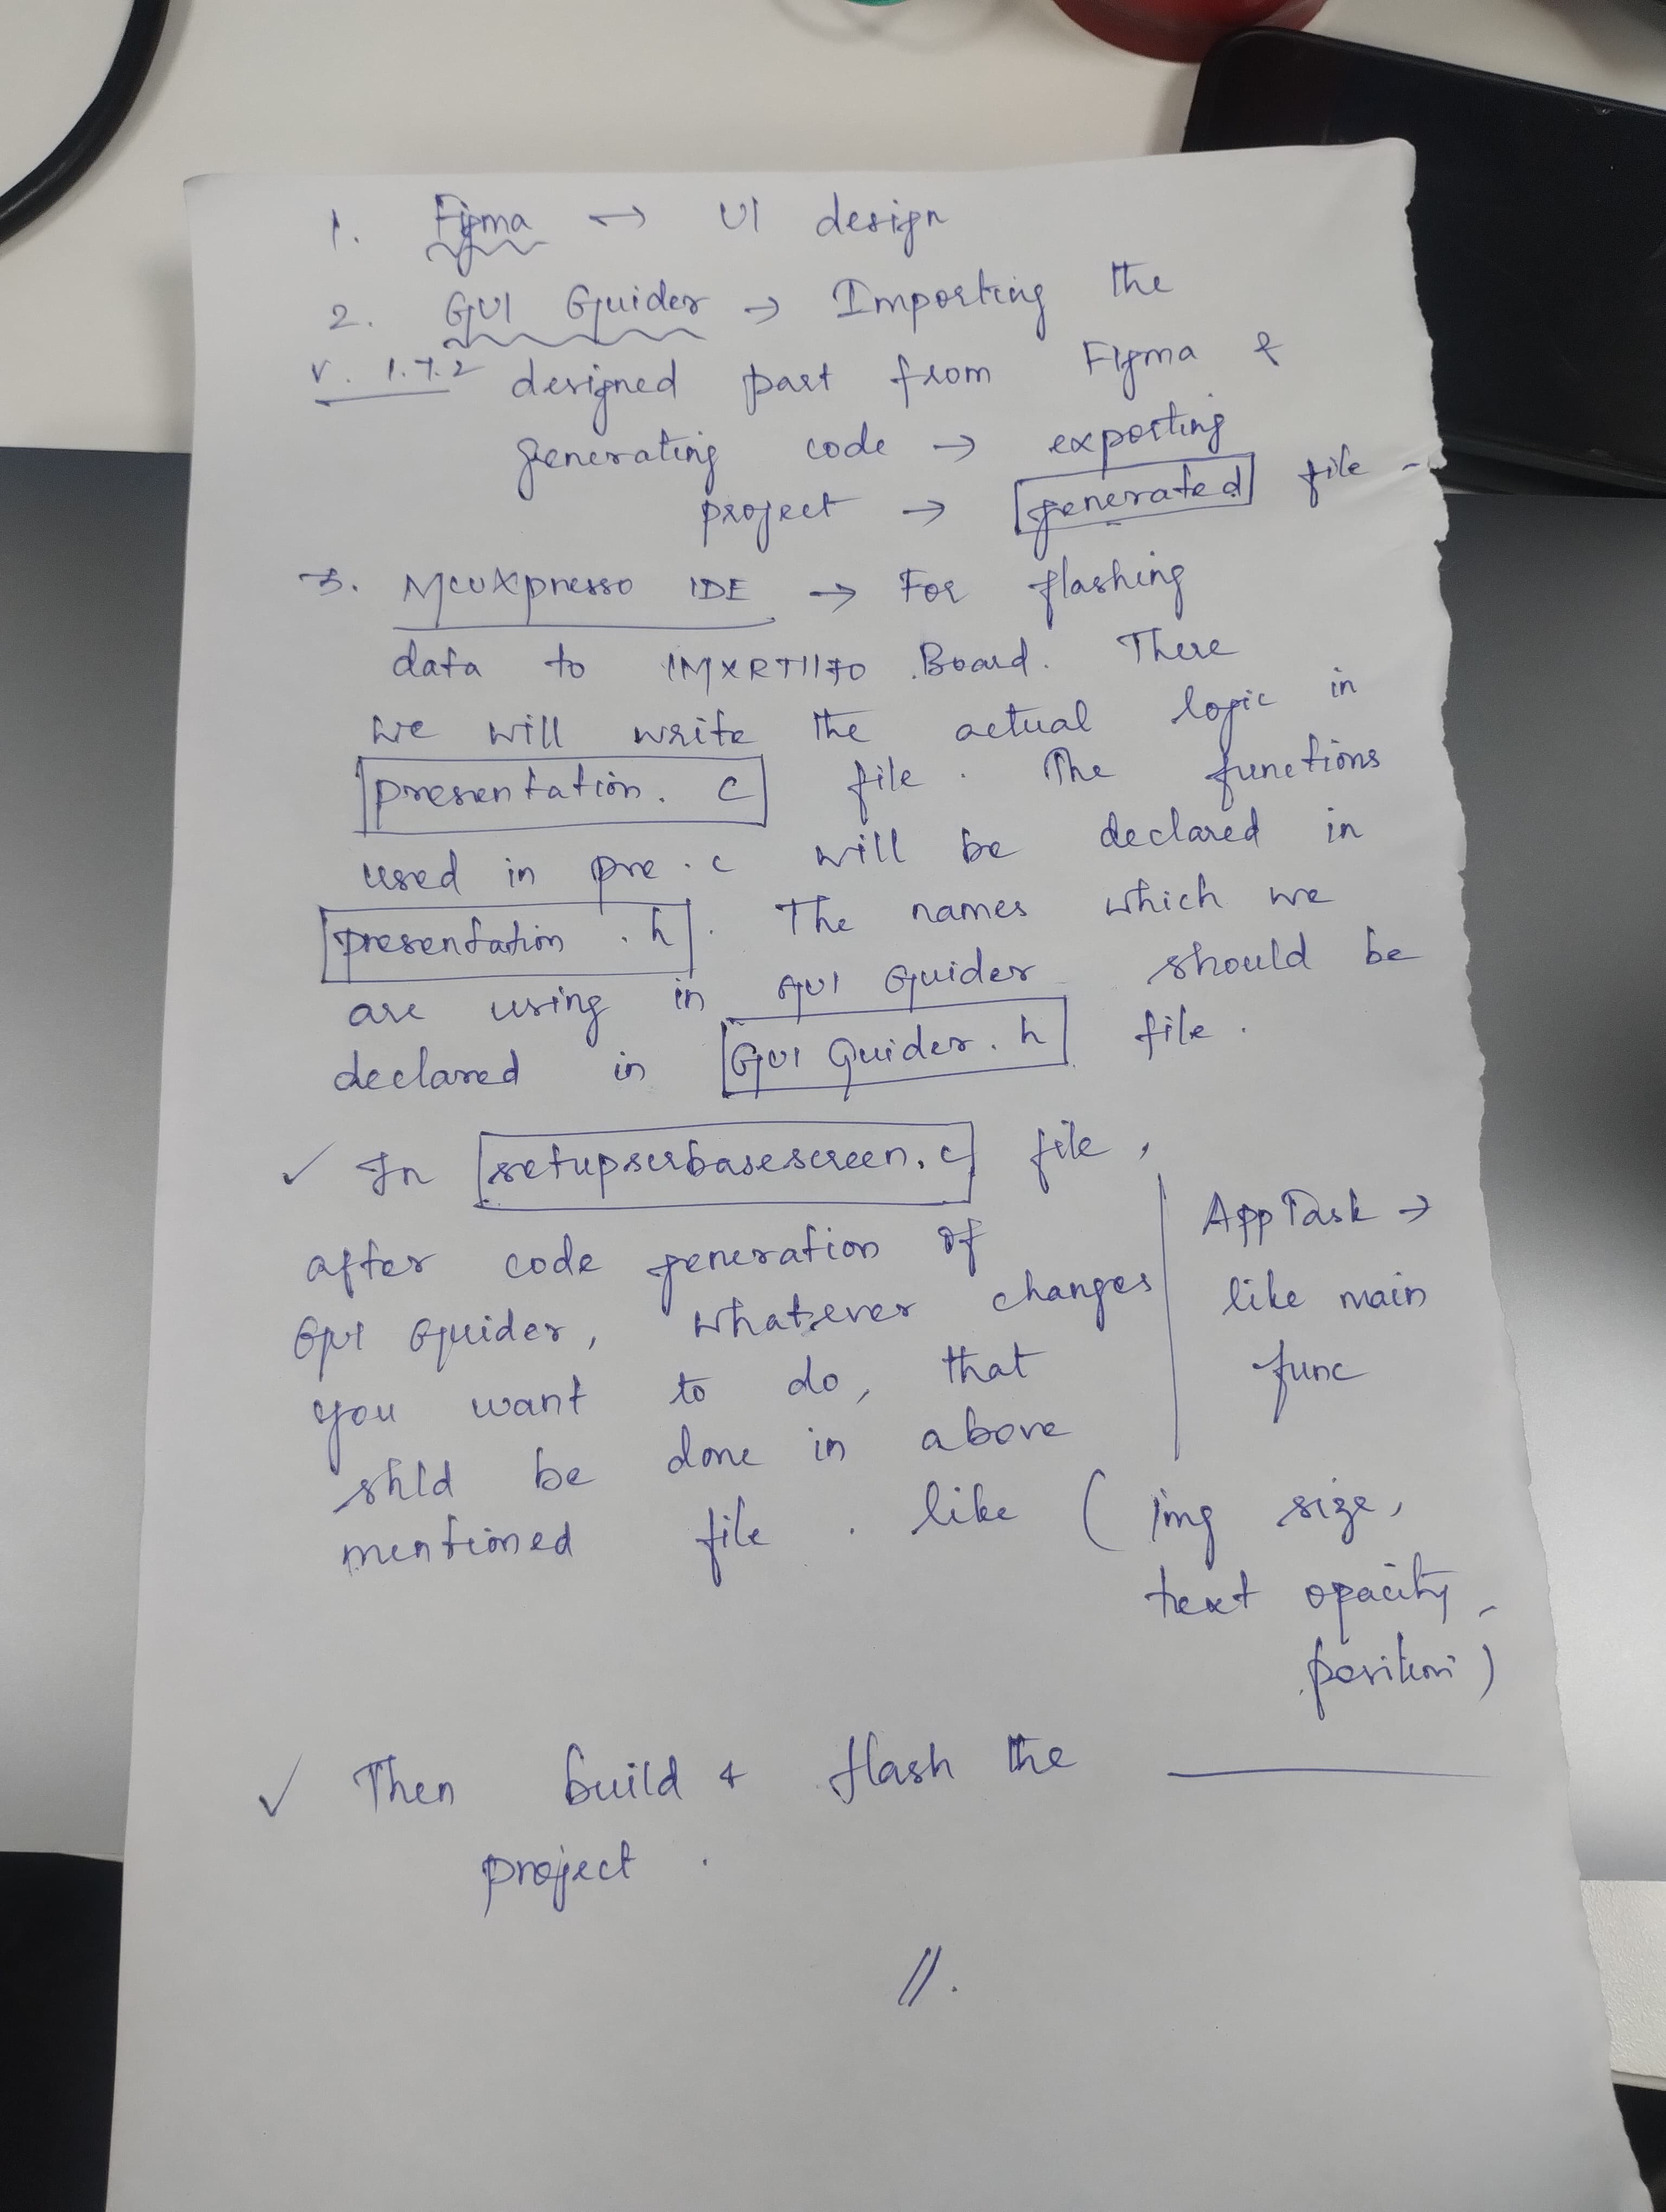 1. Figma → UI design
2. GUI Guider → Importing the
v. 1.7.2 designed part from Figma &
generating code → exporting
project → generated file
3. MCUXpresso IDE → For flashing
data to IMXRT1170 Board. There
we will write the actual logic in
presentation.c file. The functions
used in pre.c will be declared in
presentation.h. The names which we
are using in GUI Guider should be
declared in GUI Guider.h file.
✓ In setupscrbasescreen.c file,
after code generation of
GUI Guider, whatever changes
you want to do, that
shld be done in above
mentioned file. like (img size,
text opacity,
position)
AppTask →
like main
func
✓ Then build & flash the
project.
//.